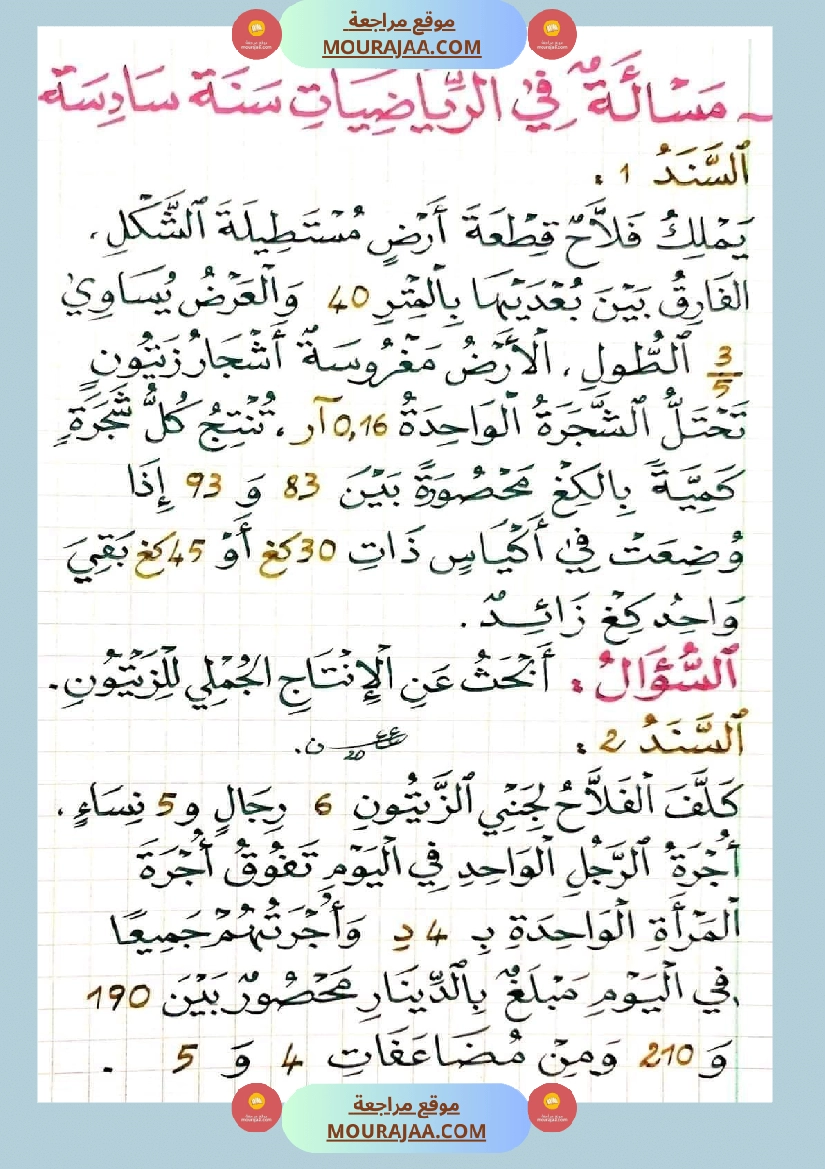 موقع مراجعة
MOURAJAA.COM
مَسْأَلَةٌ فِي الرِّيَاضِيَاتِ سَنَة سَادِسَة
السَّنَدُ 1 :
يَمْلِكُ فَلاَّحٌ قِطْعَةَ أَرْضٍ مُسْتَطِيلَةَ الشَّكْلِ،
الفَارِقُ بَيْنَ بُعْدَيْهَا بِالْمِتْرِ 40 وَالْعَرْضُ يُسَاوِي
3/5 الطُّولِ، الْأَرْضُ مَغْرُوسَةٌ أَشْجَارُ زَيْتُونٍ
تَحْتَلُّ الشَّجَرَةُ الْوَاحِدَةُ 0,16 آر، تُنْتِجُ كُلُّ شَجَرَةٍ
كَمِيَّةً بِالكِغْ مَحْصُورَةً بَيْنَ 83 وَ 93 إِذَا
وُضِعَتْ فِي أَكْيَاسٍ ذَاتِ 30 كغ أَوْ 45 كغ بَقِيَ
وَاحِد كِغْ زَائِدٌ.
السُّؤَالُ : أَبْحَثُ عَنِ الْإِنْتَاجِ الجُمْلِي لِلزَّيْتُونِ.
السَّنَدُ 2 :
كَلَّفَ الْفَلاَّحُ لِجَنْيِ الزَّيْتُونِ 6 رِجَالٍ و 5 نِسَاءٍ،
أُجْرَةُ الرَّجُلِ الْوَاحِدِ فِي الْيَوْمِ تَفُوقُ أُجْرَةَ
الْمَرْأَةِ الْوَاحِدَةِ بِـ 4 دِ وَأُجْرَتُهُمْ جَمِيعًا
فِي الْيَوْمِ مَبْلَغٌ بِالدِّينَارِ مَحْصُورٌ بَيْنَ 190
وَ 210 وَمِنْ مُضَاعَفَاتِ 4 وَ 5 .
موقع مراجعة
MOURAJAA.COM